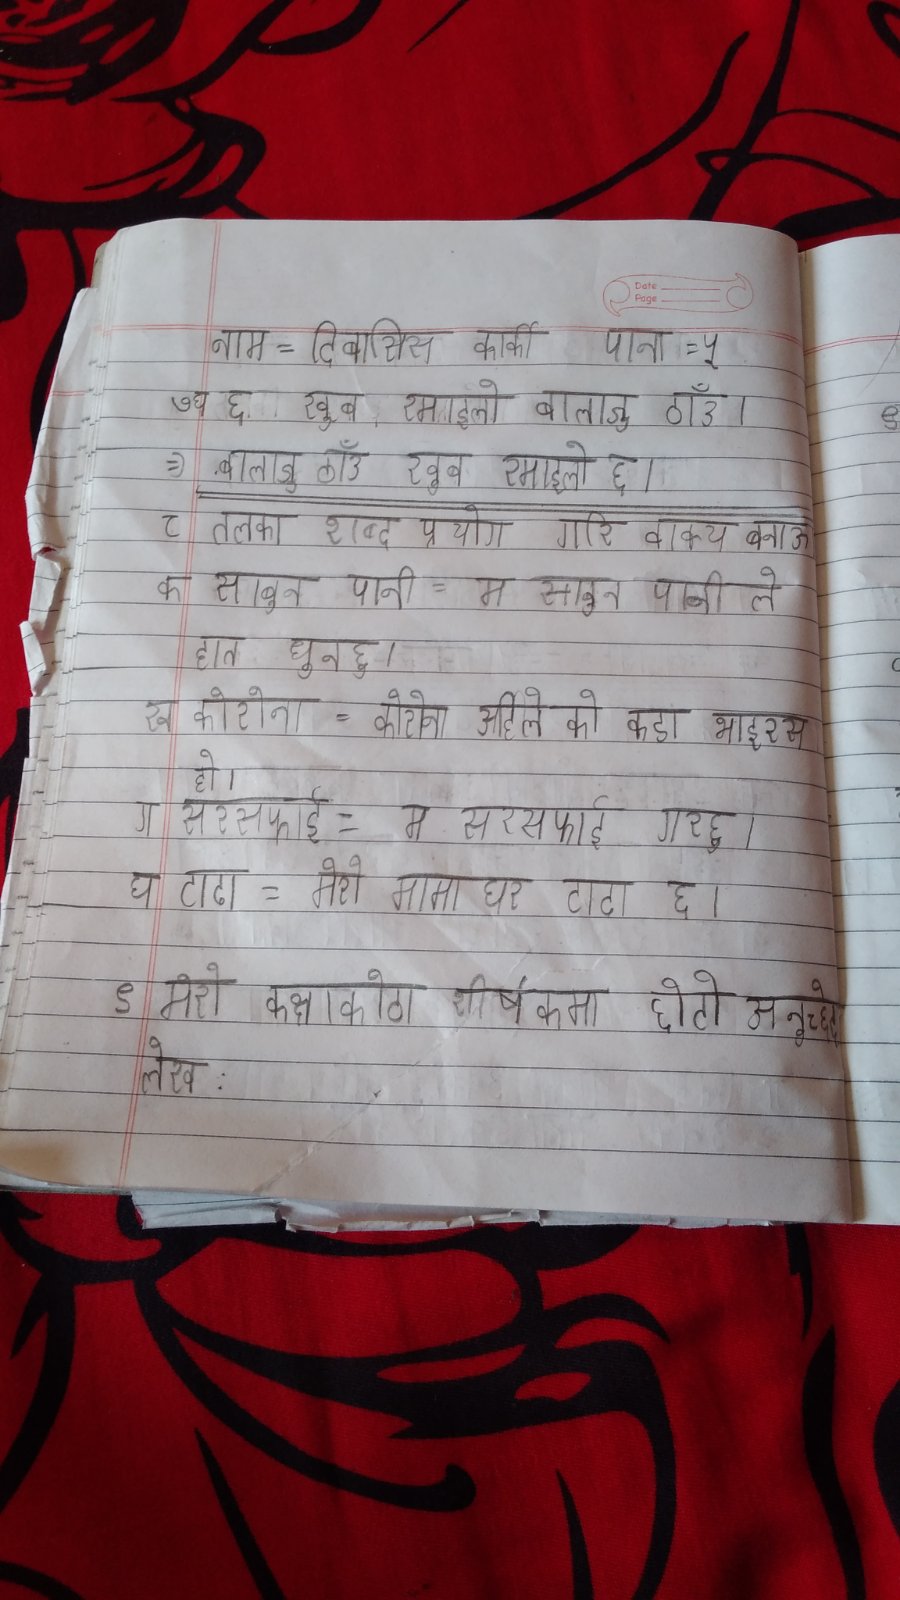 Date
Page
नाम = दिबासिस कार्की पाना = ५
७घ छ खुब रमाइलो बालाजु ठाँउ ।
⇒ बालाजु ठाँउ खुब रमाइलो छ ।
८ तलका शब्द प्रयोग गरि वाक्य बनाऊ
क साबुन पानी = म साबुन पानी ले
हात धुनछु ।
ख कोरोना = कोरोना अहिले को कडा भाइरस
हो ।
ग सरसफाई = म सरसफाई गरछु ।
घ टाढा = मेरो मामा घर टाढा छ ।
९ मेरो कक्षाकोठा शीर्षकमा छोटो अनुच्छेद
लेख :